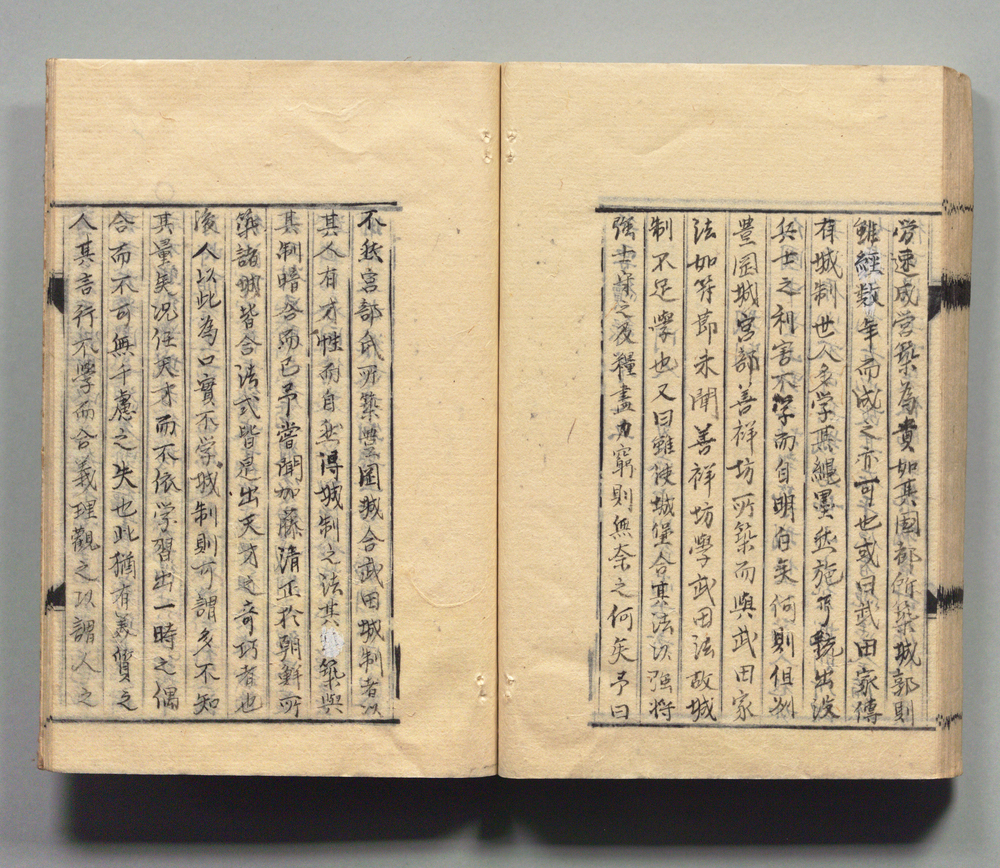 速成営築為貴如其国都所築城郭則
雖経数年而成之亦可也或曰武田家傳
有城制世人多学其縄墨然施弓銃出没
兵士之利害不学而自明白矣何則但州
豊岡城宮部善祥坊所築而與武田家
法如符節未聞善祥坊學武田法故城
制不足學也又曰雖使城堡合其法以強将
強士之及糧盡力窮則無奈之何矣予曰
不然宮部氏所築豊岡城合武田城制者以
其人有才性而自然得城制之法其築與
其制暗合而已予嘗聞加藤清正於朝鮮所
築諸城皆合法式皆是出天才之奇巧者也
後人以此為口實不学城制則可謂多不知
其量矣况任天才而不依学習出一時之偶
合而不可無千慮之失也此猶有美質之
人其言行不學而合義理觀之以謂人之